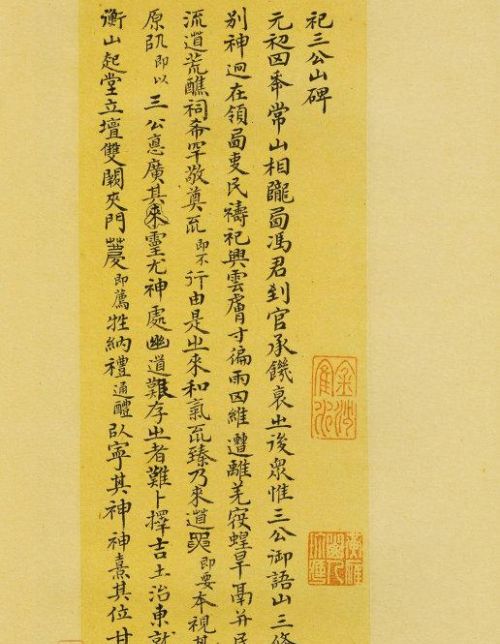 祀三公山碑
元初四秊常山相隴西馮君到官承饑衰㞢後眾惟三公御語山三條
別神迥在領西吏民禱祀興雲膚寸徧雨四維遭離羌寇蝗旱鬲并民
流道荒醮祠希罕敬奠不即不行由是㞢來和氣不臻乃來道即要本視其
原即以三公悳廣其靈尤神處幽道艱存㞢者難卜擇吉土治東就
衡山起堂立壇雙闕夾門即薦牲納禮通醴㠯寧其神神熹其位甘